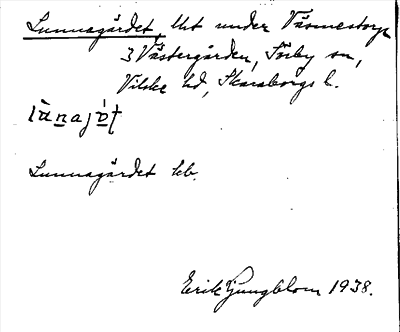 Lunnagärdet, lht under Väsmestorp
3 Västergården, Sörby sn,
Vilske hd, Skaraborgs l.
Lunnagärdet kb.
Erik Ljungblom 1938.